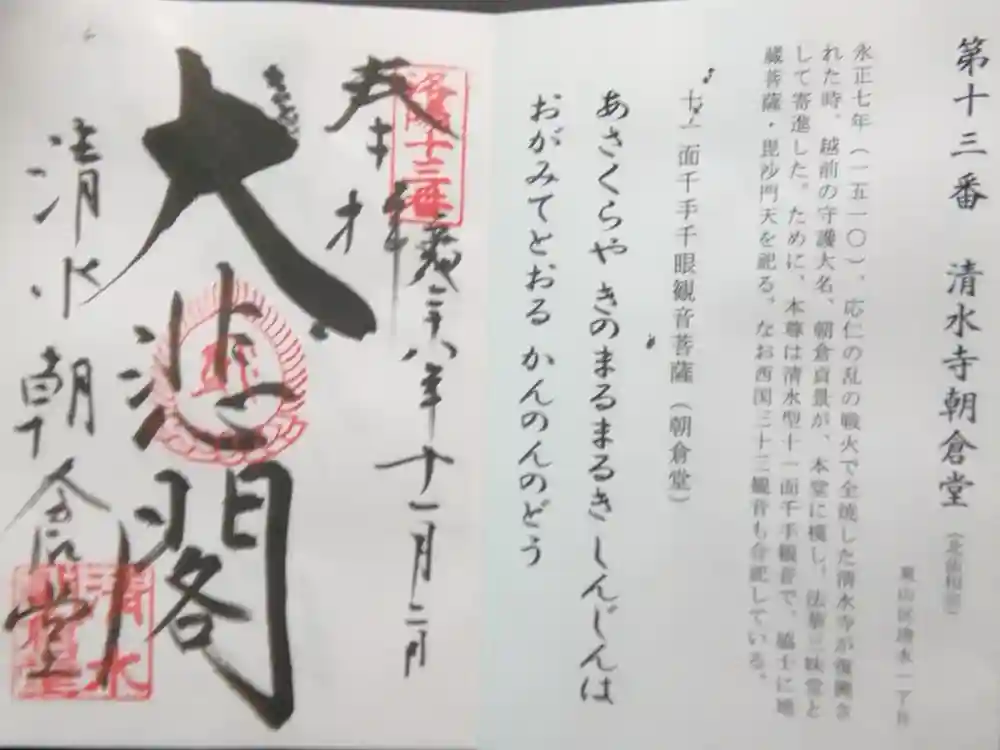 第十三番 清水寺朝倉堂(北法相宗)
東山区清水一丁目
永正七年(一五一〇)、応仁の乱の戦火で全焼した清水寺が復興さ
れた時、越前の守護大名、朝倉貞景が、本堂に模し、法華三昧堂と
して寄進した。ために、本尊は清水型十一面千手観音で、脇士に地
蔵菩薩・毘沙門天を祀る。なお西国三十三観音も合祀している。
十一面千手千眼観音菩薩(朝倉堂)
あさくらや きのまるまるき しんじんは
おがみてとおる かんのんのどう
洛陽十三番
奉拝
八年十一月二
大悲閣
清水朝倉堂
清水